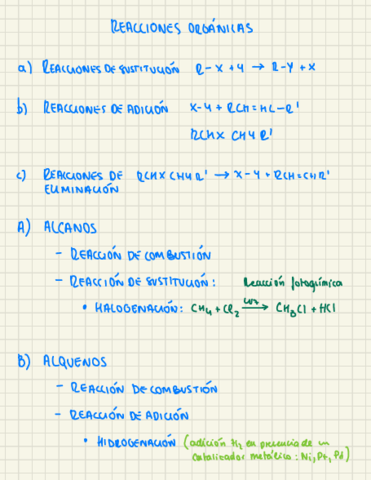 REACCIONES ORGÁNICAS
a) REACCIONES DE SUSTITUCIÓN R-X + Y → R-Y + X
b) REACCIONES DE ADICIÓN X-Y + RCH=HC-R'
RCHX CHYR'
c) REACCIONES DE ELIMINACIÓN RCHX CHYR' → X-Y + RCH=CHR'
A) ALCANOS
- REACCIÓN DE COMBUSTIÓN
- REACCIÓN DE SUSTITUCIÓN: Reacción fotoquímica
• HALOGENACIÓN: CH4 + Cl2 —UV→ CH3Cl + HCl
B) ALQUENOS
- REACCIÓN DE COMBUSTIÓN
- REACCIÓN DE ADICIÓN
• HIDROGENACIÓN (adición H2 en presencia de un
catalizador metálico: Ni, Pt, Pd)